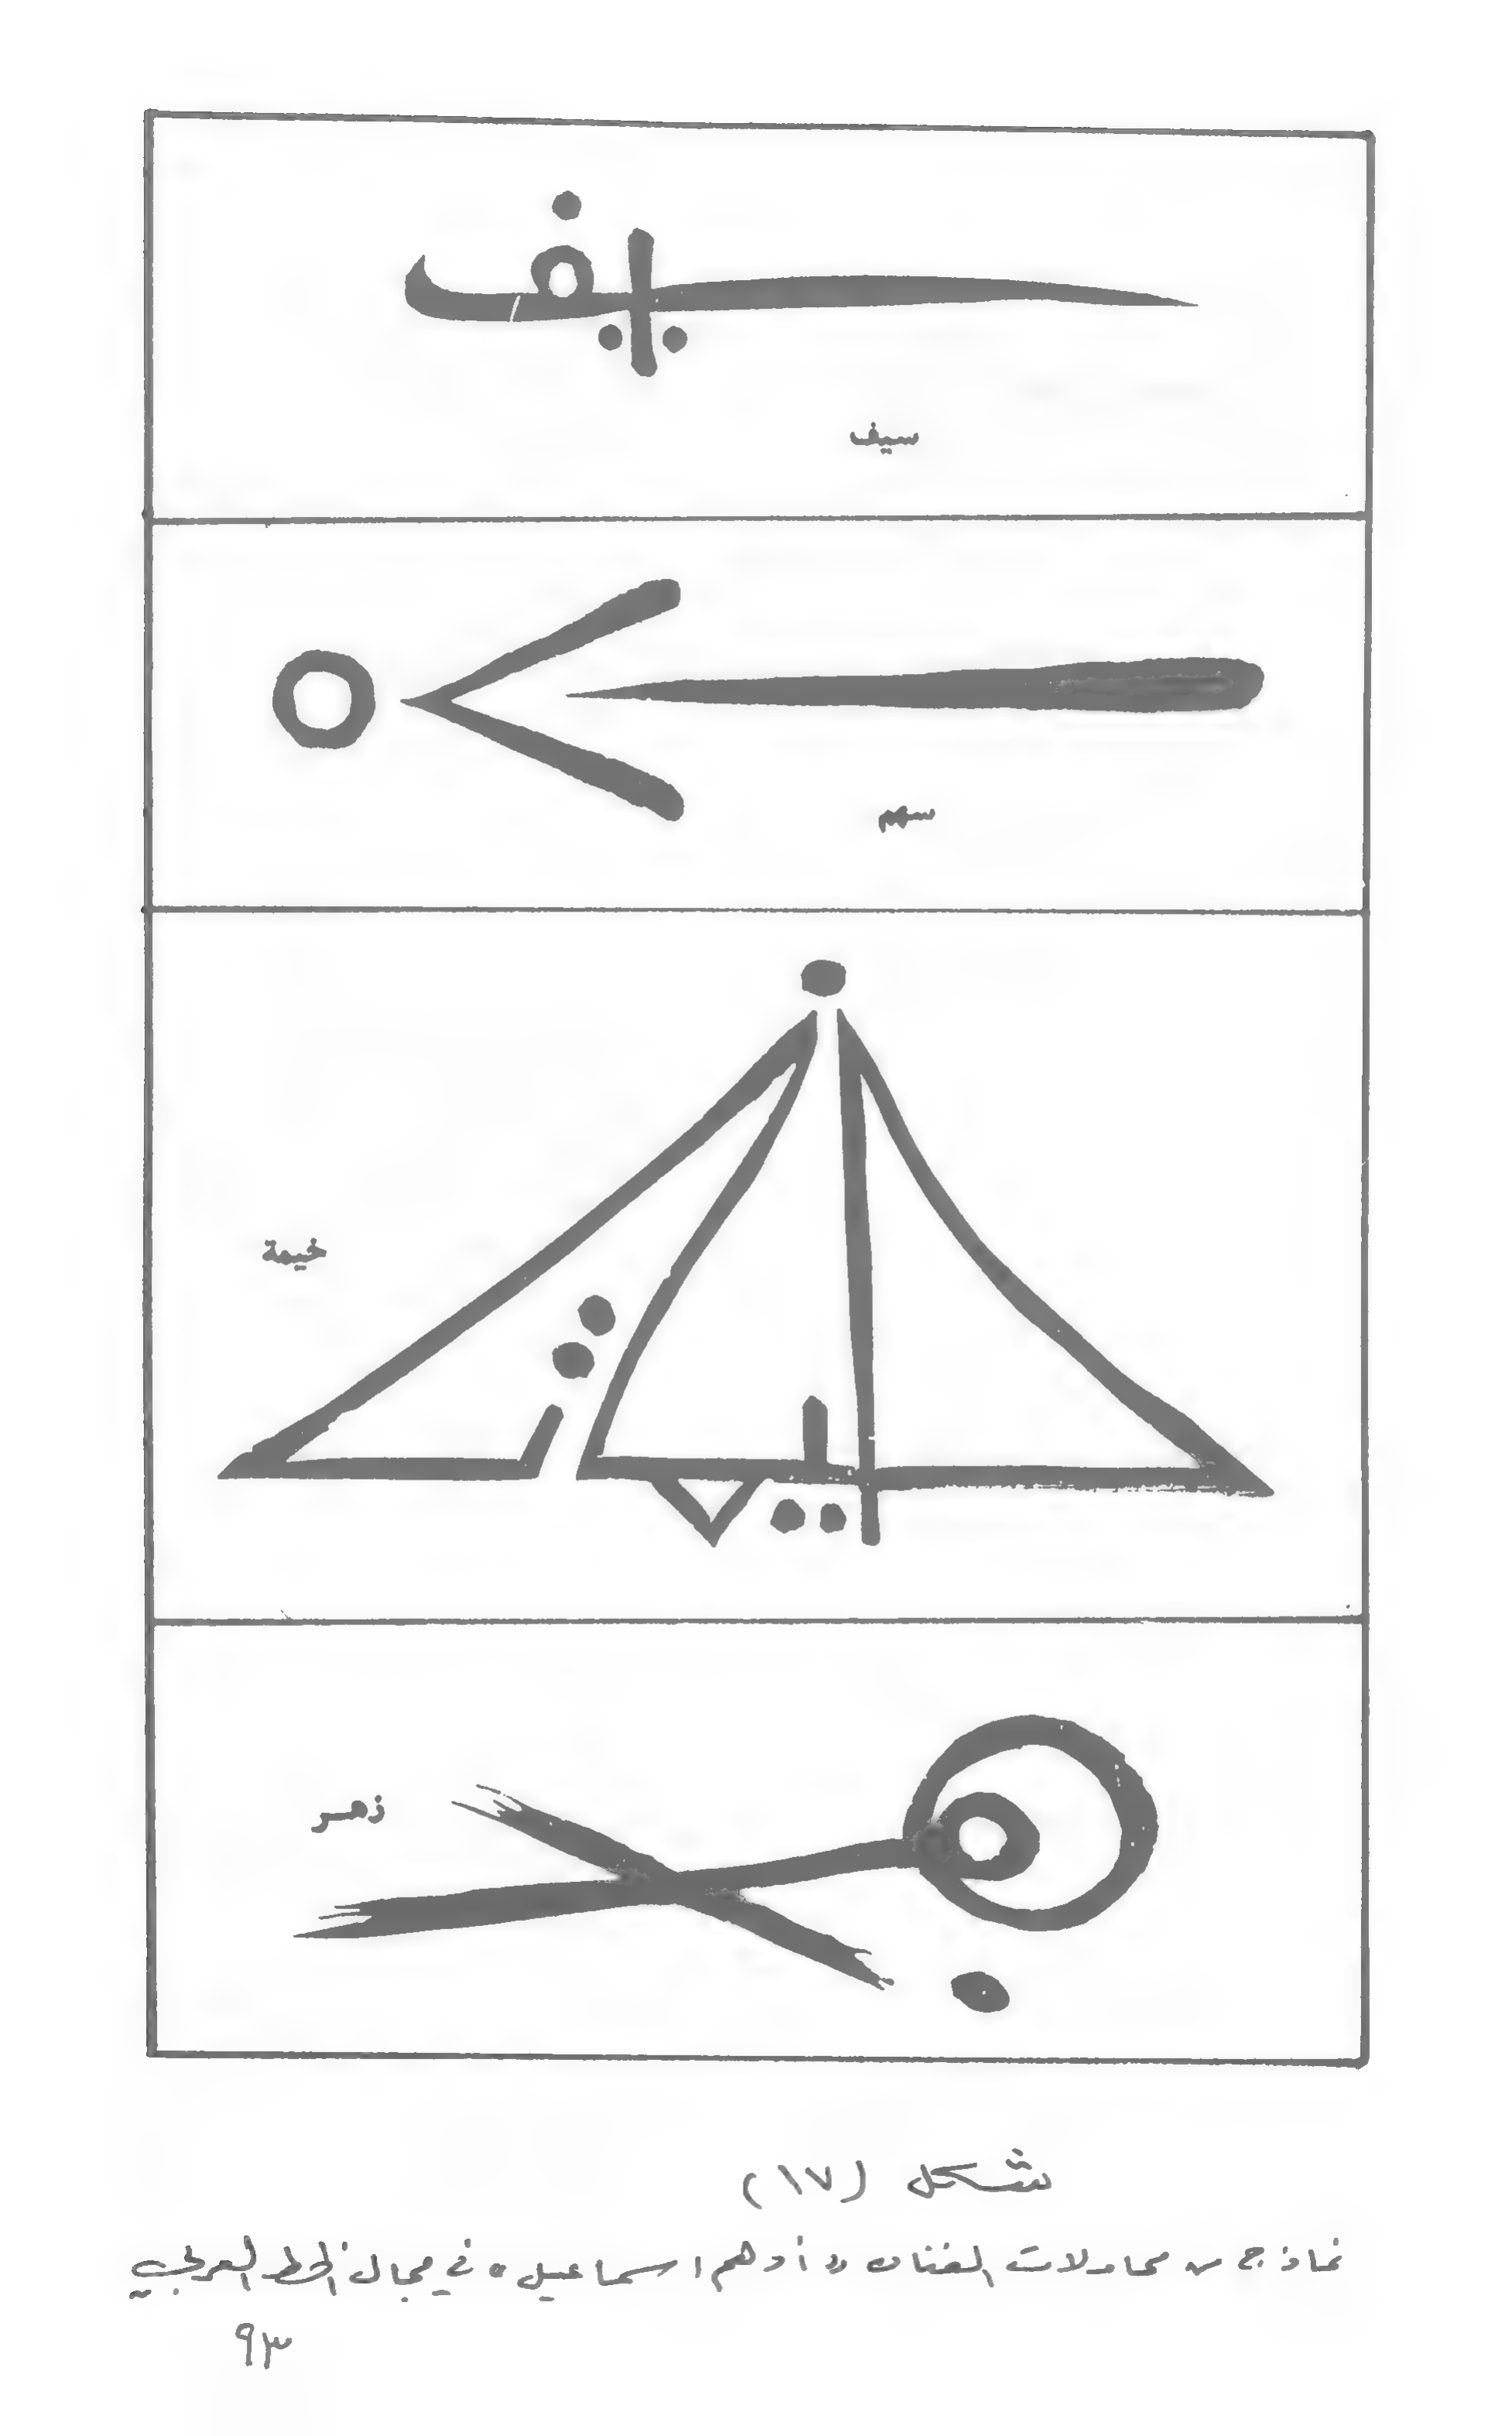 سيف
سهم
خيمة
زهر
شكل (١٧)
نماذج من محاولات الفنان « أدهم اسماعيل » في مجال الخط العربي
٩٣